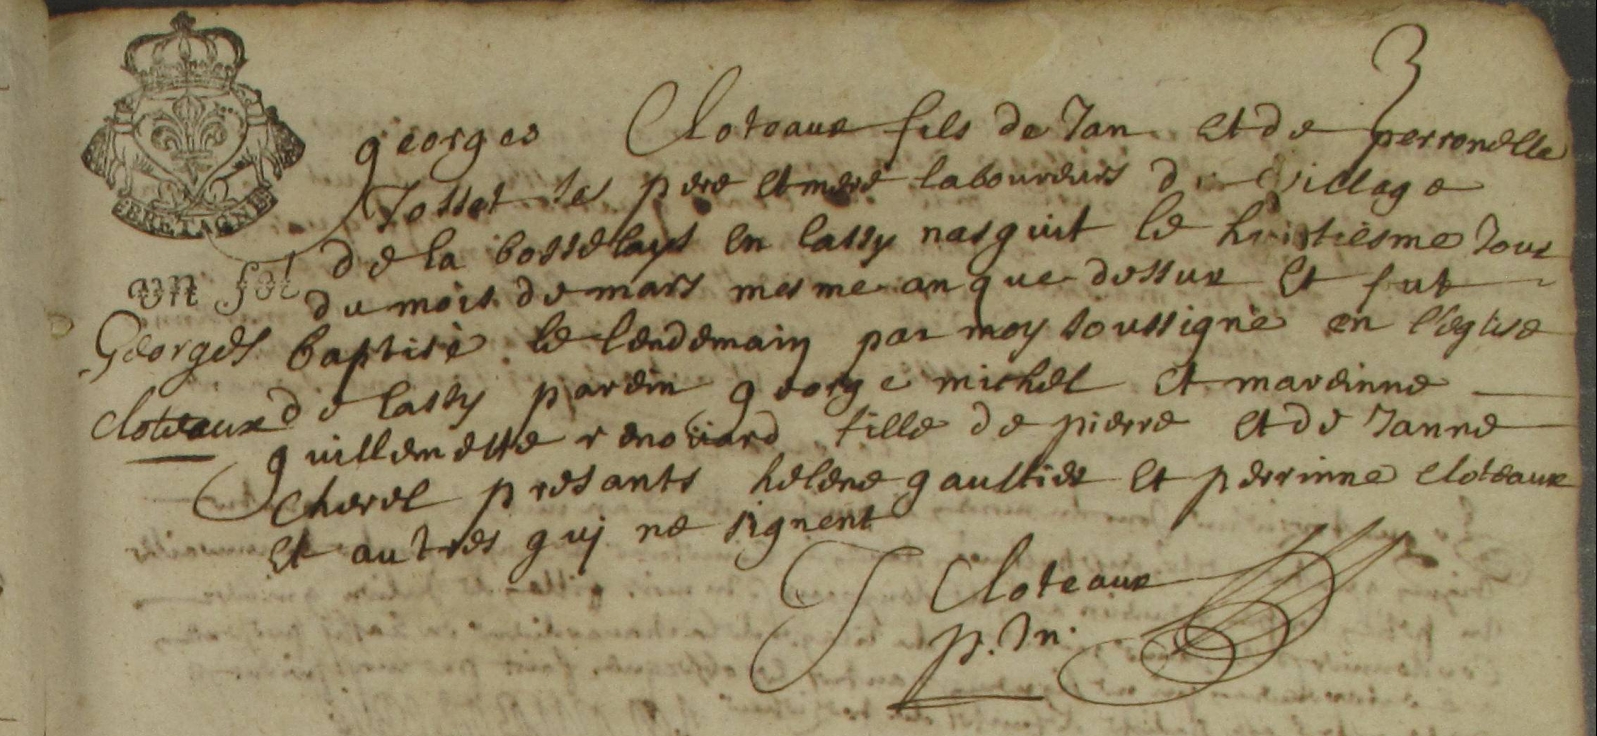 3
georges Cloteaux fils de Jan et de perronelle
Josset ses pere et mere laboureurs du village
BRETAGNE
de la bosselays en lassy nasquit le huistiesme Jour
un sol
du mois de mars mesme an que dessus et fut
Georges
baptisé le lendemain par moy soussigné en l'eglise
cloteaux
de lassy parein george michel et mareinne
guillemette renoüard fille de pierre et de Janne
cherel presants helene gaultier et perrinne cloteaux
et autres quj ne signent
J Cloteaux
p. Jn.